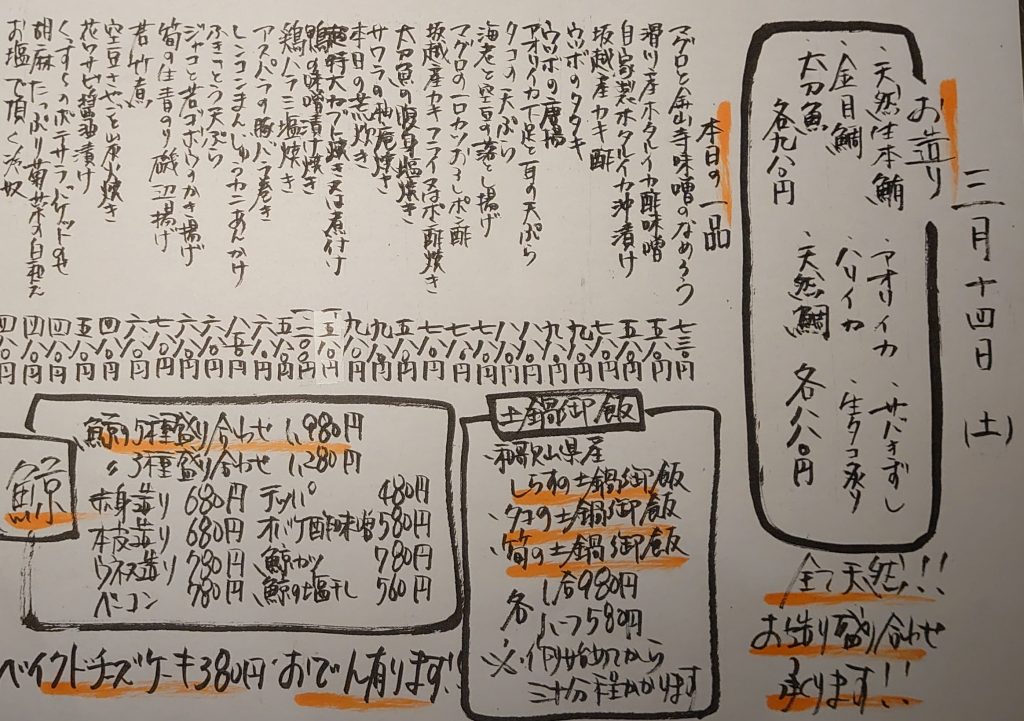 三月十四日(土)
お造り
・天然生本鮪
・金目鯛
・太刀魚
各九八〇円
・アオリイカ
・ハリイカ
・天然鯛
・サバきずし
・生タコ造り
各八八〇円
全て天然!!
お造り盛り合わせ
承ります!!
本日の一品
マグロと金山寺味噌のなめろう 七三〇円
滑川産ホタルイカ酢味噌 五八〇円
自家製ホタルイカ沖漬け 五八〇円
坂越産カキ酢 七八〇円
ウツボのタタキ 九八〇円
ウツボの唐揚 九八〇円
アオリイカ下足と百合の天ぷら 八八〇円
タコの天ぷら 八八〇円
海老と空豆の落とし揚げ 七八〇円
マグロの一口カツおろしポン酢 七八〇円
坂越産カキフライ又はポン酢焼き 七八〇円
太刀魚の塩焼き 五八〇円
サワラの柚庵焼き 九八〇円
本日の荒炊き 九八〇円
大カブト焼き又は煮付 一五八〇円
鴨の味噌漬け焼き 一二八〇円
鶏ハラミ塩焼き 五八〇円
アスパラの豚バラ巻き 六八〇円
レンコンまんじゅうカニあんかけ 八五〇円
ふきっとう天ぷら 六八〇円
ジャコと若ゴボウのかき揚げ 六八〇円
筍の生青のり磯辺揚げ 七八〇円
若竹煮 六八〇円
空豆さやごと炭火焼き 四八〇円
花ワサビ醤油漬け 五八〇円
くずし
ポテサラ
バゲットのせ 四八〇円
胡麻たっぷり菊菜の白和え 四八〇円
お塩で頂く冷奴 四八〇円
土鍋御飯
和歌山県産
しらすの土鍋御飯
・タコの土鍋御飯
・筍の土鍋御飯
各
1合980円
1ハーフ580円
※作り始めてから
三十分程かかります
鯨
鯨の5種盛り合わせ 1,980円
〃3種盛り合わせ 1,280円
赤身造り 680円
本皮造り 680円
ウネス造り 780円
ベーコン 780円
テッパ 480円
オバケ酢味噌 580円
鯨カツ 780円
鯨の塩干し 560円
ベイクドチーズケーキ380円・おでん有ります!!